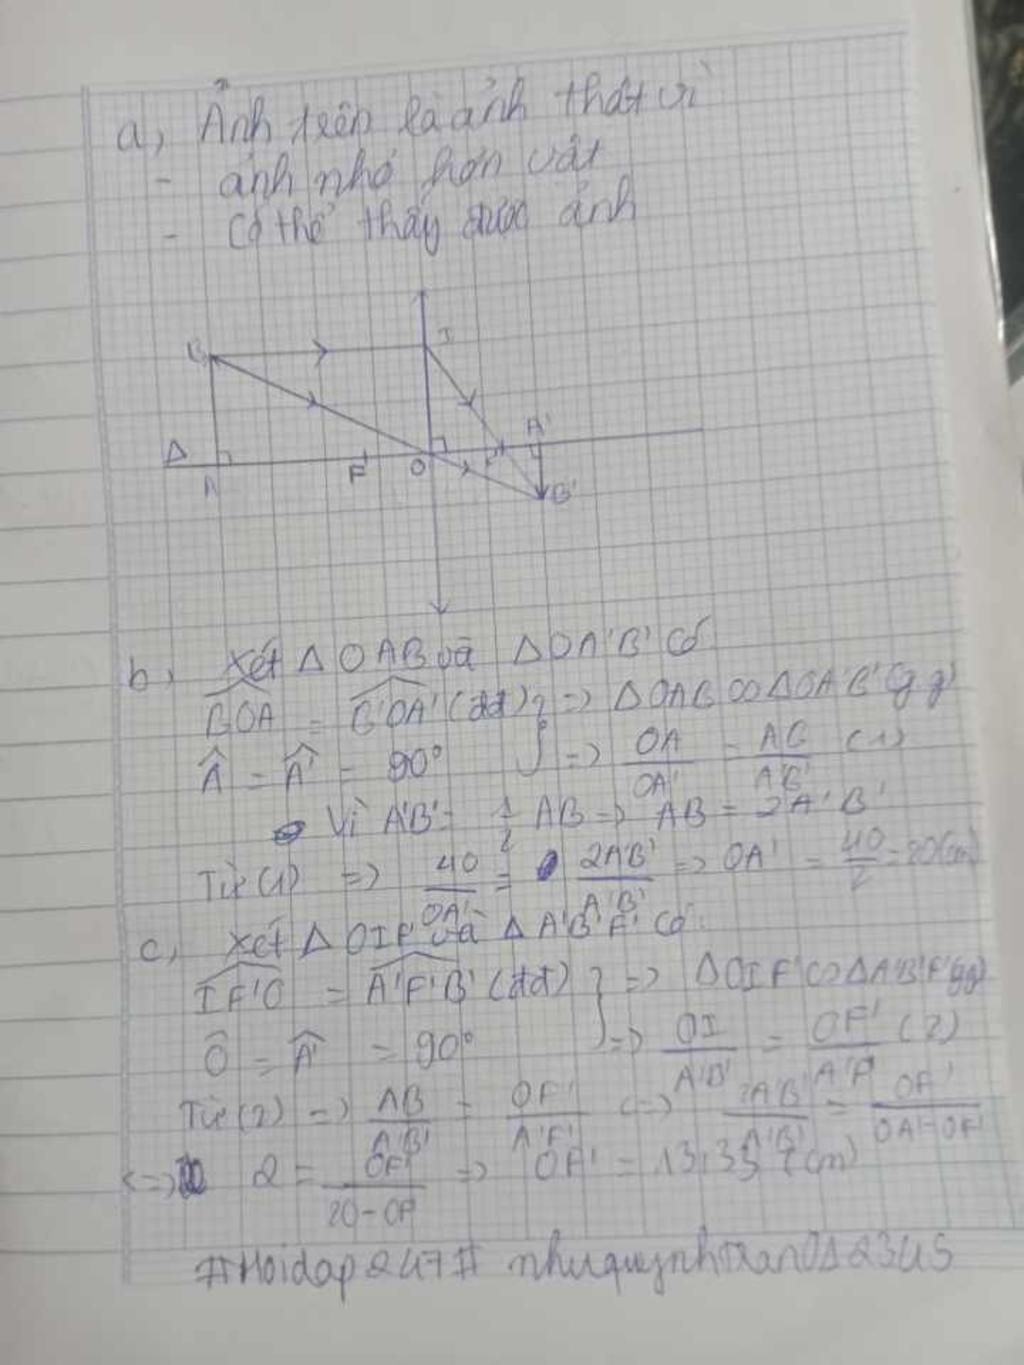 a, Ảnh trên là ảnh thật vì
- ảnh nhỏ hơn vật
- Có thể thấy được ảnh
B
I
A'
Δ
A
F
O
F'
B'
b, Xét Δ OAB và Δ OA'B' có
BOA = B'OA' (dd) } => Δ OAB ∽ Δ OA'B' (g g)
Â = Â' = 90° => OA/OA' = AB/A'B' (1)
Vì A'B' = 1/2 AB => AB = 2A'B'
Từ (1) => 40/OA' = 2A'B'/A'B' => OA' = 40/2 = 20(cm)
c, Xét Δ OIF' và Δ A'B'F' có
IF'O = A'F'B' (dd) } => Δ OIF' ∽ Δ A'B'F' (gg)
Ô = Â' = 90° => OI/A'B' = OF'/A'F' (2)
Từ (2) => AB/A'B' = OF'/A'F' <=> 2A'B'/A'B' = OF'/OA'-OF'
<=> 2 = OF'/20-OF' => OF' = 13,33 (cm)
#Hoidap247# nhuquynhtran012345